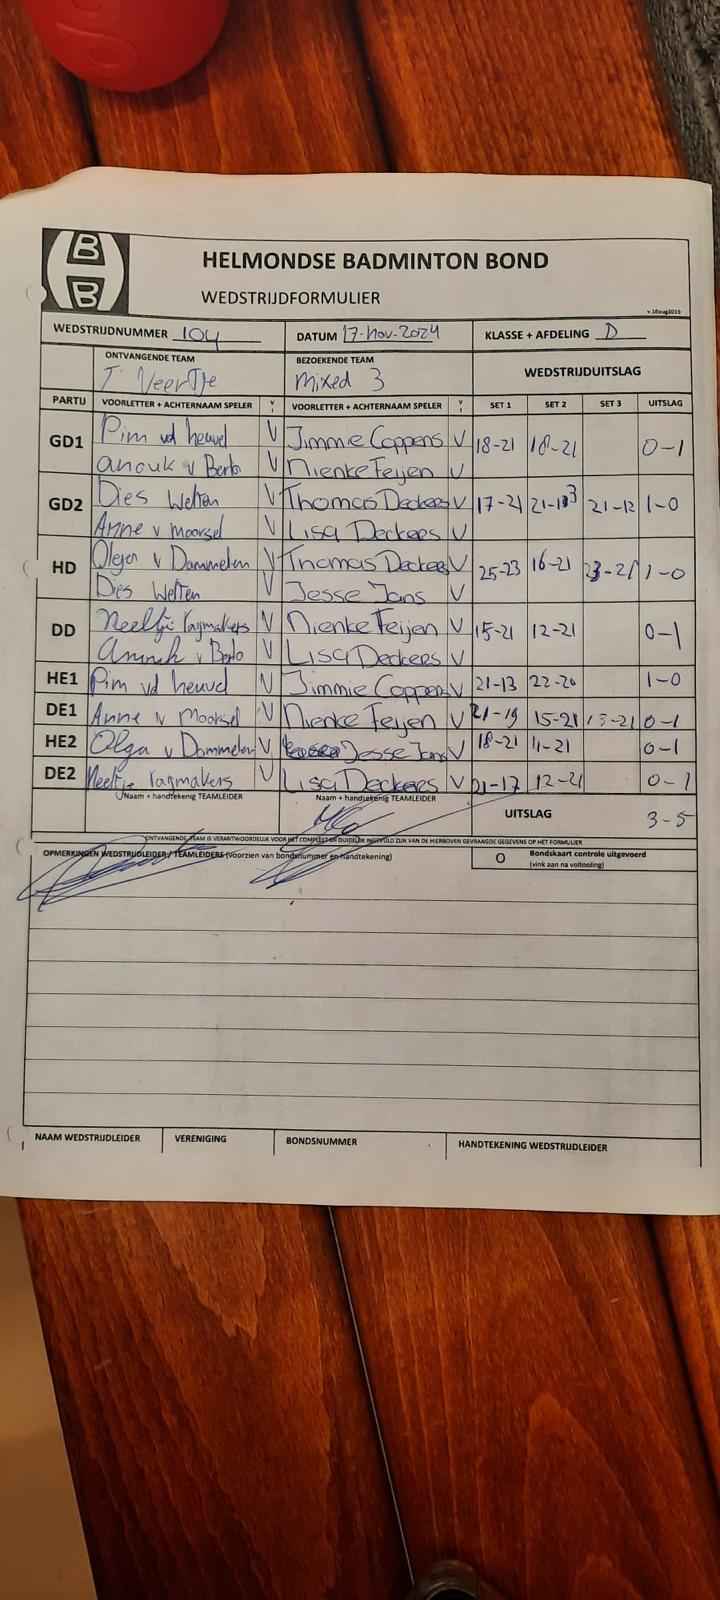 HELMONDSE BADMINTON BOND
WEDSTRIJDFORMULIER
v.18aug2019
WEDSTRIJDNUMMER 104 DATUM 17-nov-2024 KLASSE + AFDELING D
ONTVANGENDE TEAM BEZOEKENDE TEAM WEDSTRIJDUITSLAG
T Veertje mixed 3
PARTIJ VOORLETTER + ACHTERNAAM SPELER V VOORLETTER + ACHTERNAAM SPELER V SET 1 SET 2 SET 3 UITSLAG
GD1 Pim vd heuvel V Jimmie Coppens V 18-21 18-21 0-1
anouk v Berlo V Nienke Feijen V
GD2 Dies Welten V Thomas Deckers V 17-21 21-13 21-12 1-0
Anne v moorsel V Lisa Deckers V
HD v Dommelen V Thomas Deckers V 25-23 16-21 23-21 1-0
Dies Welten V Jesse Jans V
DD Neeltje raymakers V Nienke Feijen V 15-21 12-21 0-1
Anouk v Berlo V Lisa Deckers V
HE1 Pim vd heuvel V Jimmie Coppens V 21-13 22-20 1-0
DE1 Anne v Moorsel V Nienke Feijen V 21-19 15-21 -21 0-1
HE2 Olga v Dommelen V Jesse Jans V 18-21 11-21 0-1
DE2 Neeltje raymakers V Lisa Deckers V 21-17 12-21 0-1
Naam + handtekenig TEAMLEIDER Naam + handtekenig TEAMLEIDER UITSLAG 3-5
ONTVANGENDE TEAM IS VERANTWOORDELIJK VOOR HET COMPLEET EN DUIDELIJK INGEVULD ZIJN VAN DE HIERBOVEN GEVRAAGDE GEGEVENS OP HET FORMULIER
OPMERKINGEN WEDSTRIJDLEIDER / TEAMLEIDERS (voorzien van bondsnummer en handtekening) O Bondskaart controle uitgevoerd
(vink aan na voltooiing)
NAAM WEDSTRIJDLEIDER VERENIGING BONDSNUMMER HANDTEKENING WEDSTRIJDLEIDER